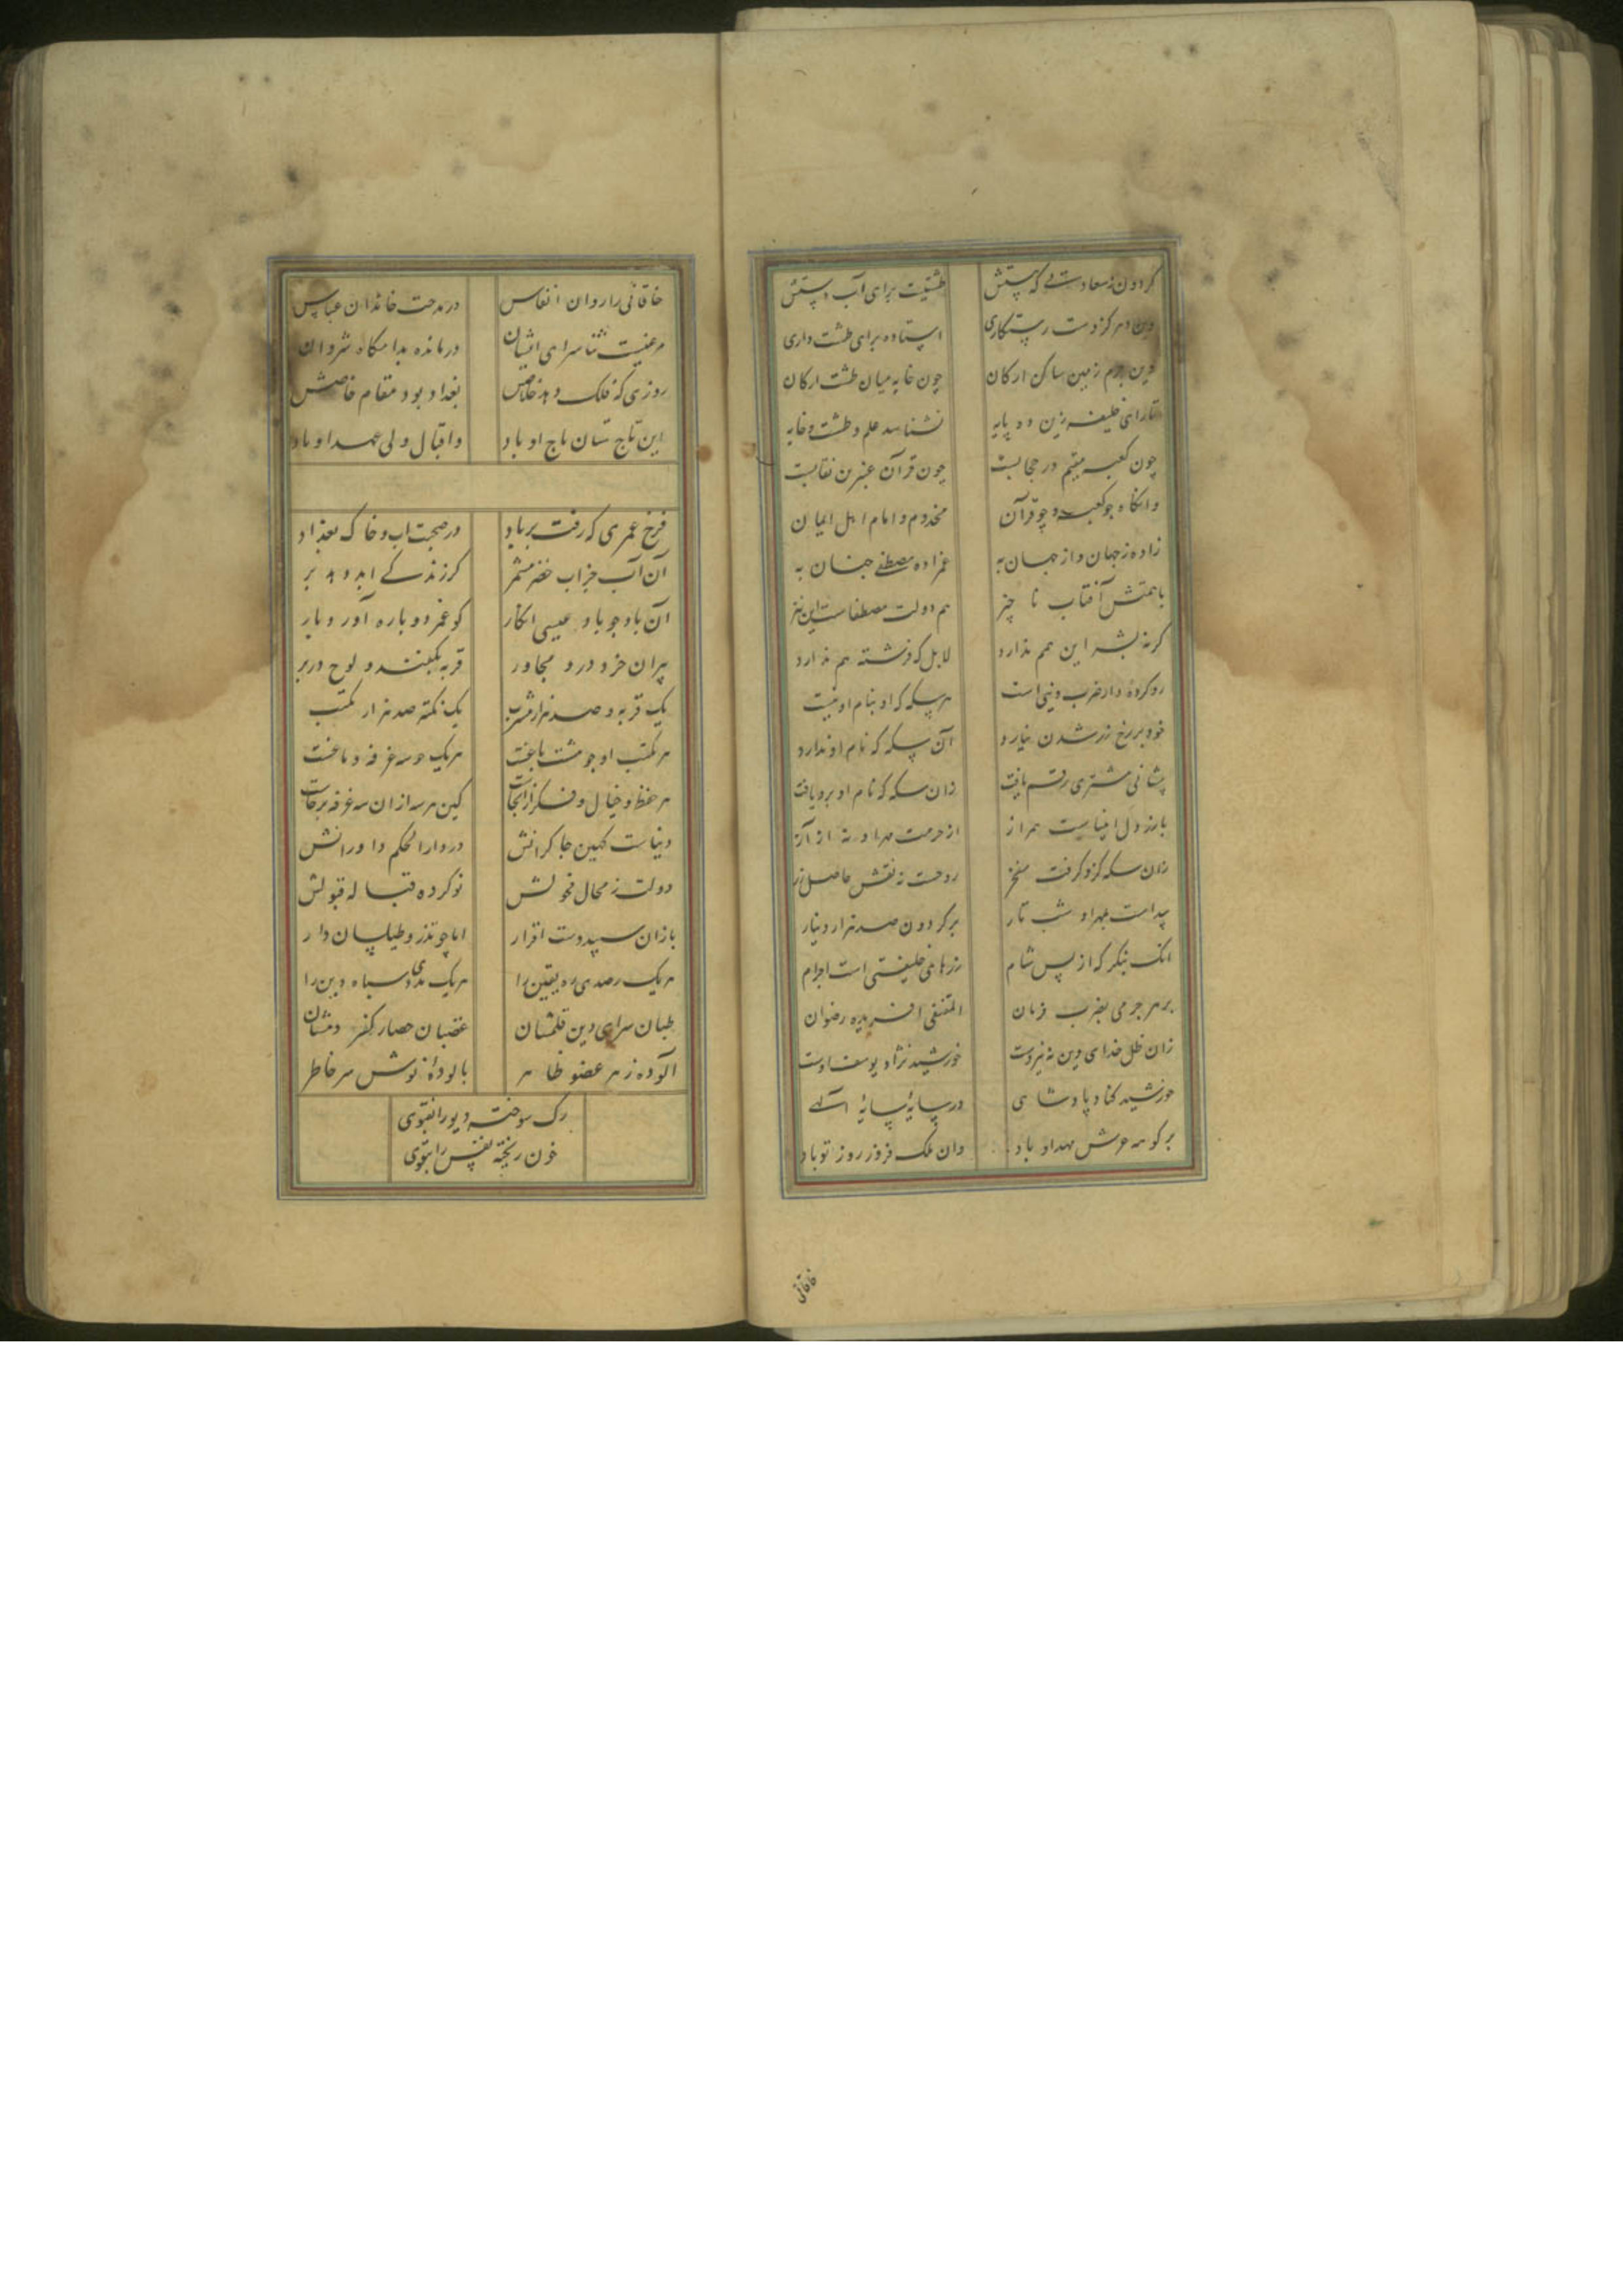 گردون ز سعادت که پستش طشتیست برای آب دستش
وین مرکز دست رستکاری استاده برای طشت داری
وین جرم زمین ساکن ارکان چون خایه میان طشت ارکان
تا رای خلیفه زین دو پایه نشناسد علم و طشت و خایه
چون کعبه مقیم در حجابست چون قرآن عنبرین نقابست
وانگاه چو کعبه و چو قرآن مخدوم و امام اهل ایمان
زاده ز جهان و از جهان به عمزاده مصطفی چنان به
با همتش آفتاب ناچیز هم دولت مصطفاست این نیز
کرنه بشر این همم ندارد لابل که فرشته هم ندارد
رو کرده دار ضرب دنیی است هر سکه که او بنام او نیست
خود بر رخ زر شدن نیارد آن سکه که نام او ندارد
پیشانی مشتری رقم یافت زان سکه که نام او برو یافت
با رز دل انبیاست همراز از حرمت مهر او نه از آز
زان سکه کزو گرفت مفخر روحست ز نقش حاصل زر
پیداست بمهر او شب تار بر گردون صد هزار دینار
انک بنگر که از پس شام زرهای خلیفتی است اجرام
بر هر جرمی بضرب فرمان المقتفی آفریده رضوان
زان ظل خدای دین به نیروست خورشید نژاد یوسف اوست
خورشید کناد پادشاهی در سایه سایه الهی
بر کوهه عرش مهد او باد وان ملک فروز روز تو باد
خاقانی
خاقانی را روان انفاس در مدحت خاندان عباس
مرغیست ثنا سرای ایشان درمانده بدامگاه شروان
روزی که فلک دهد خلاصش بغداد بود مقام خاصش
این تاج ستان تاج او باد واقبال ولی عهد او باد
فرخ عمری که رفت بر باد در صحبت آب و خاک بغداد
آن آب جز آب خضر مشمر کز زندگی ابد دهد بر
آن باد چو باد عیسی انگار کو عمر دوباره آورد بار
پیران خرد درو مجاور قربه بکتف و لوح در بر
یک قربه و صد هزار مشرب یک نکته صد هزار مکتب
هر مکتب او چو هشت باغت هر یک دو سه غرفه دماغت
هر حفظ و خیال و فکر از آنجاست کین هر سه از آن سه غرفه برخاست
دنیاست کهین چاکرانش در دار الحکم داورانش
دولت ز محال فحولش نو کرده قباله قبولش
بازان سپید دست اقرار اما چو تذرو طیلسان دار
هر یک رصدی ره یقین را هر یک مددی سپاه دین را
طبان سرای دین قلمشان غضبان حصار کفر دمشان
آلوده زهر عضو ظاهر پالوده نوش سر خاطر
رک سوخته دیو را بفتوی
خون ریخته نفس را بتقوی